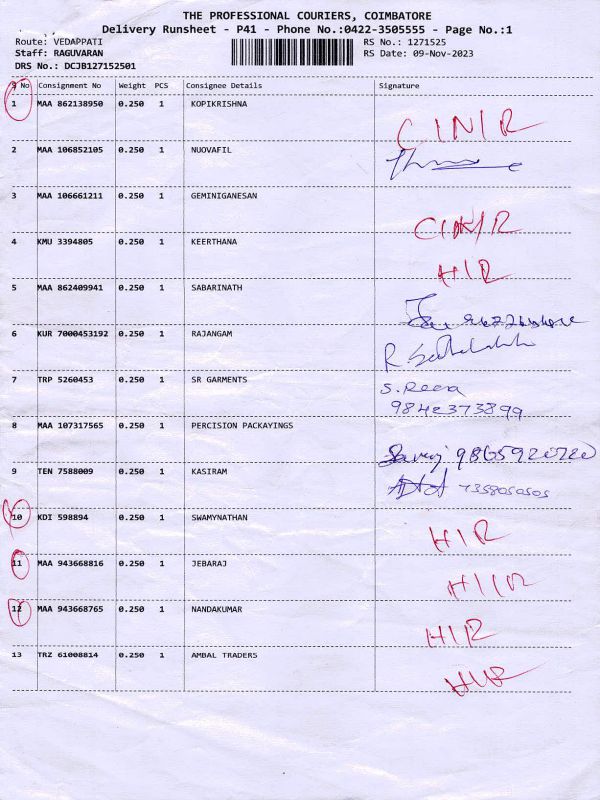 THE PROFESSIONAL COURIERS, COIMBATORE
Delivery Runsheet - P41 - Phone No.:0422-3505555 - Page No.:1
Route: VEDAPPATI RS No.: 1271525
Staff: RAGUVARAN RS Date: 09-Nov-2023
DRS No.: DCJB127152501
S No Consignment No Weight PCS Consignee Details Signature
1 MAA 862138950 0.250 1 KOPIKRISHNA
C/N/R
2 MAA 106852105 0.250 1 NUOVAFIL
3 MAA 106661211 0.250 1 GEMINIGANESAN
4 KMU 3394805 0.250 1 KEERTHANA
H/R
5 MAA 862409941 0.250 1 SABARINATH
6 KUR 7000453192 0.250 1 RAJANGAM
7 TRP 5260453 0.250 1 SR GARMENTS
S. Reena
9842373899
8 MAA 107317565 0.250 1 PERCISION PACKAYINGS
9 TEN 7588009 0.250 1 KASIRAM
7358050505
10 KDI 598894 0.250 1 SWAMYNATHAN
H/R
11 MAA 943668816 0.250 1 JEBARAJ
12 MAA 943668765 0.250 1 NANDAKUMAR
H/R
13 TRZ 61008814 0.250 1 AMBAL TRADERS